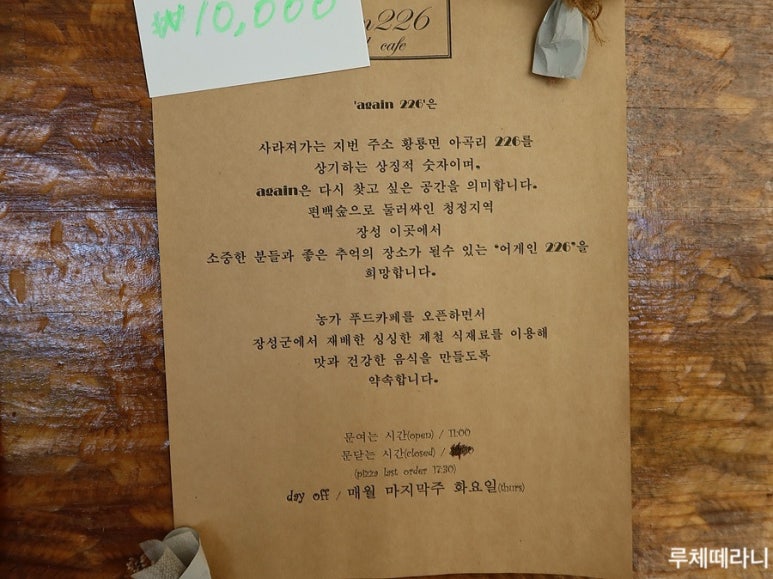 ₩10,000
226
cafe
'again 226'은
사라져가는 지번 주소 황룡면 아곡리 226를
상기하는 상징적 숫자이며.
again은 다시 찾고 싶은 공간을 의미합니다.
편백숲으로 둘러싸인 청정지역
장성 이곳에서
소중한 분들과 좋은 추억의 장소가 될수 있는 '어게인 226'을
희망합니다.
농가 푸드카페를 오픈하면서
장성군에서 재배한 싱싱한 제철 식재료를 이용해
맛과 건강한 음식을 만들도록
약속합니다.
문여는 시간(open) / 11:00
문닫는 시간(closed) /
(pizza last order 17:30)
day off / 매월 마지막주 화요일(thurs)
루체떼라니